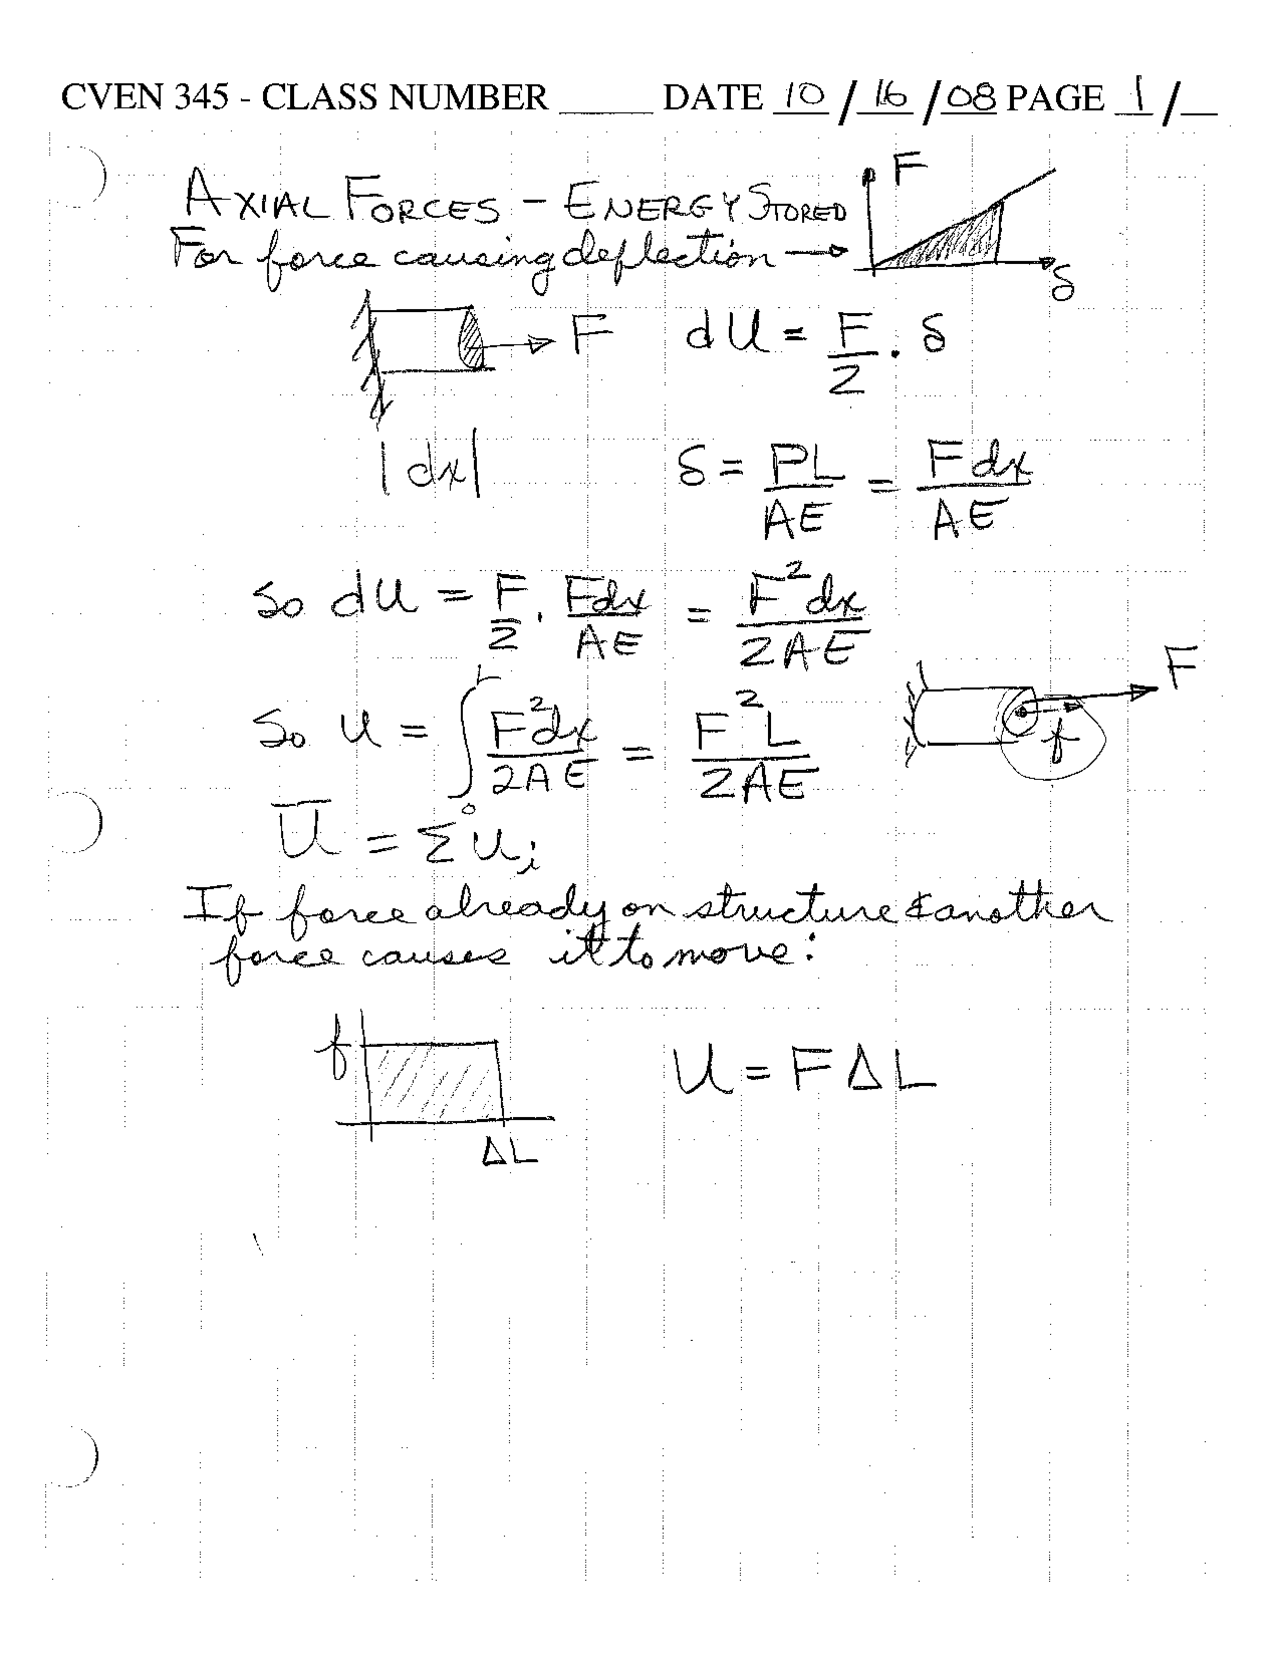 CVEN 345 - CLASS NUMBER _____ DATE 10 / 16 / 08 PAGE 1 / __
AXIAL FORCES - ENERGY STORED
F
For force causing deflection →
δ
F
dU = F/2 · δ
|dx|
δ = PL/AE = Fdx/AE
So dU = F/2 · Fdx/AE = F²dx/2AE
F
So U = ∫₀ᴸ F²dx/2AE = F²L/2AE
f
U = Σ Ui
If force already on structure & another
force causes it to move:
f
U = F ΔL
ΔL